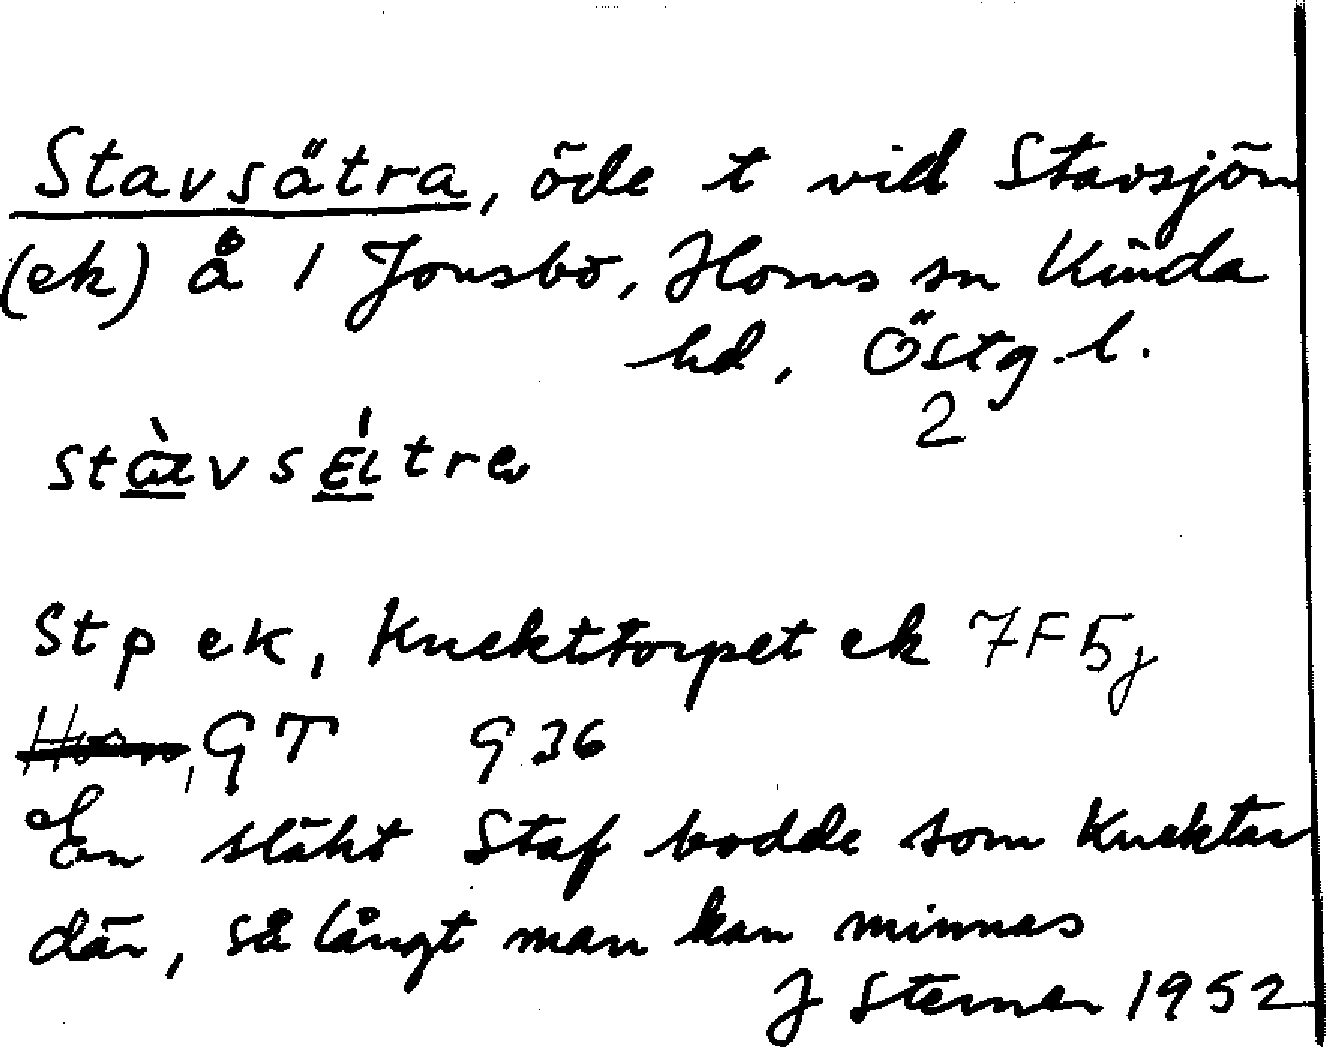 Stavsätra, öde t vid Stavsjön
(ek) å 1 Jonsbo, Horns sn Kinda
hd, Östg.l.
2
stàzvsɛ́itra
Stp ek, Knekttorpet ek 7F5j
Horn, GT 936
En släkt Staf bodde som knektar
där, så långt man kan minnas
J Sterner 1952